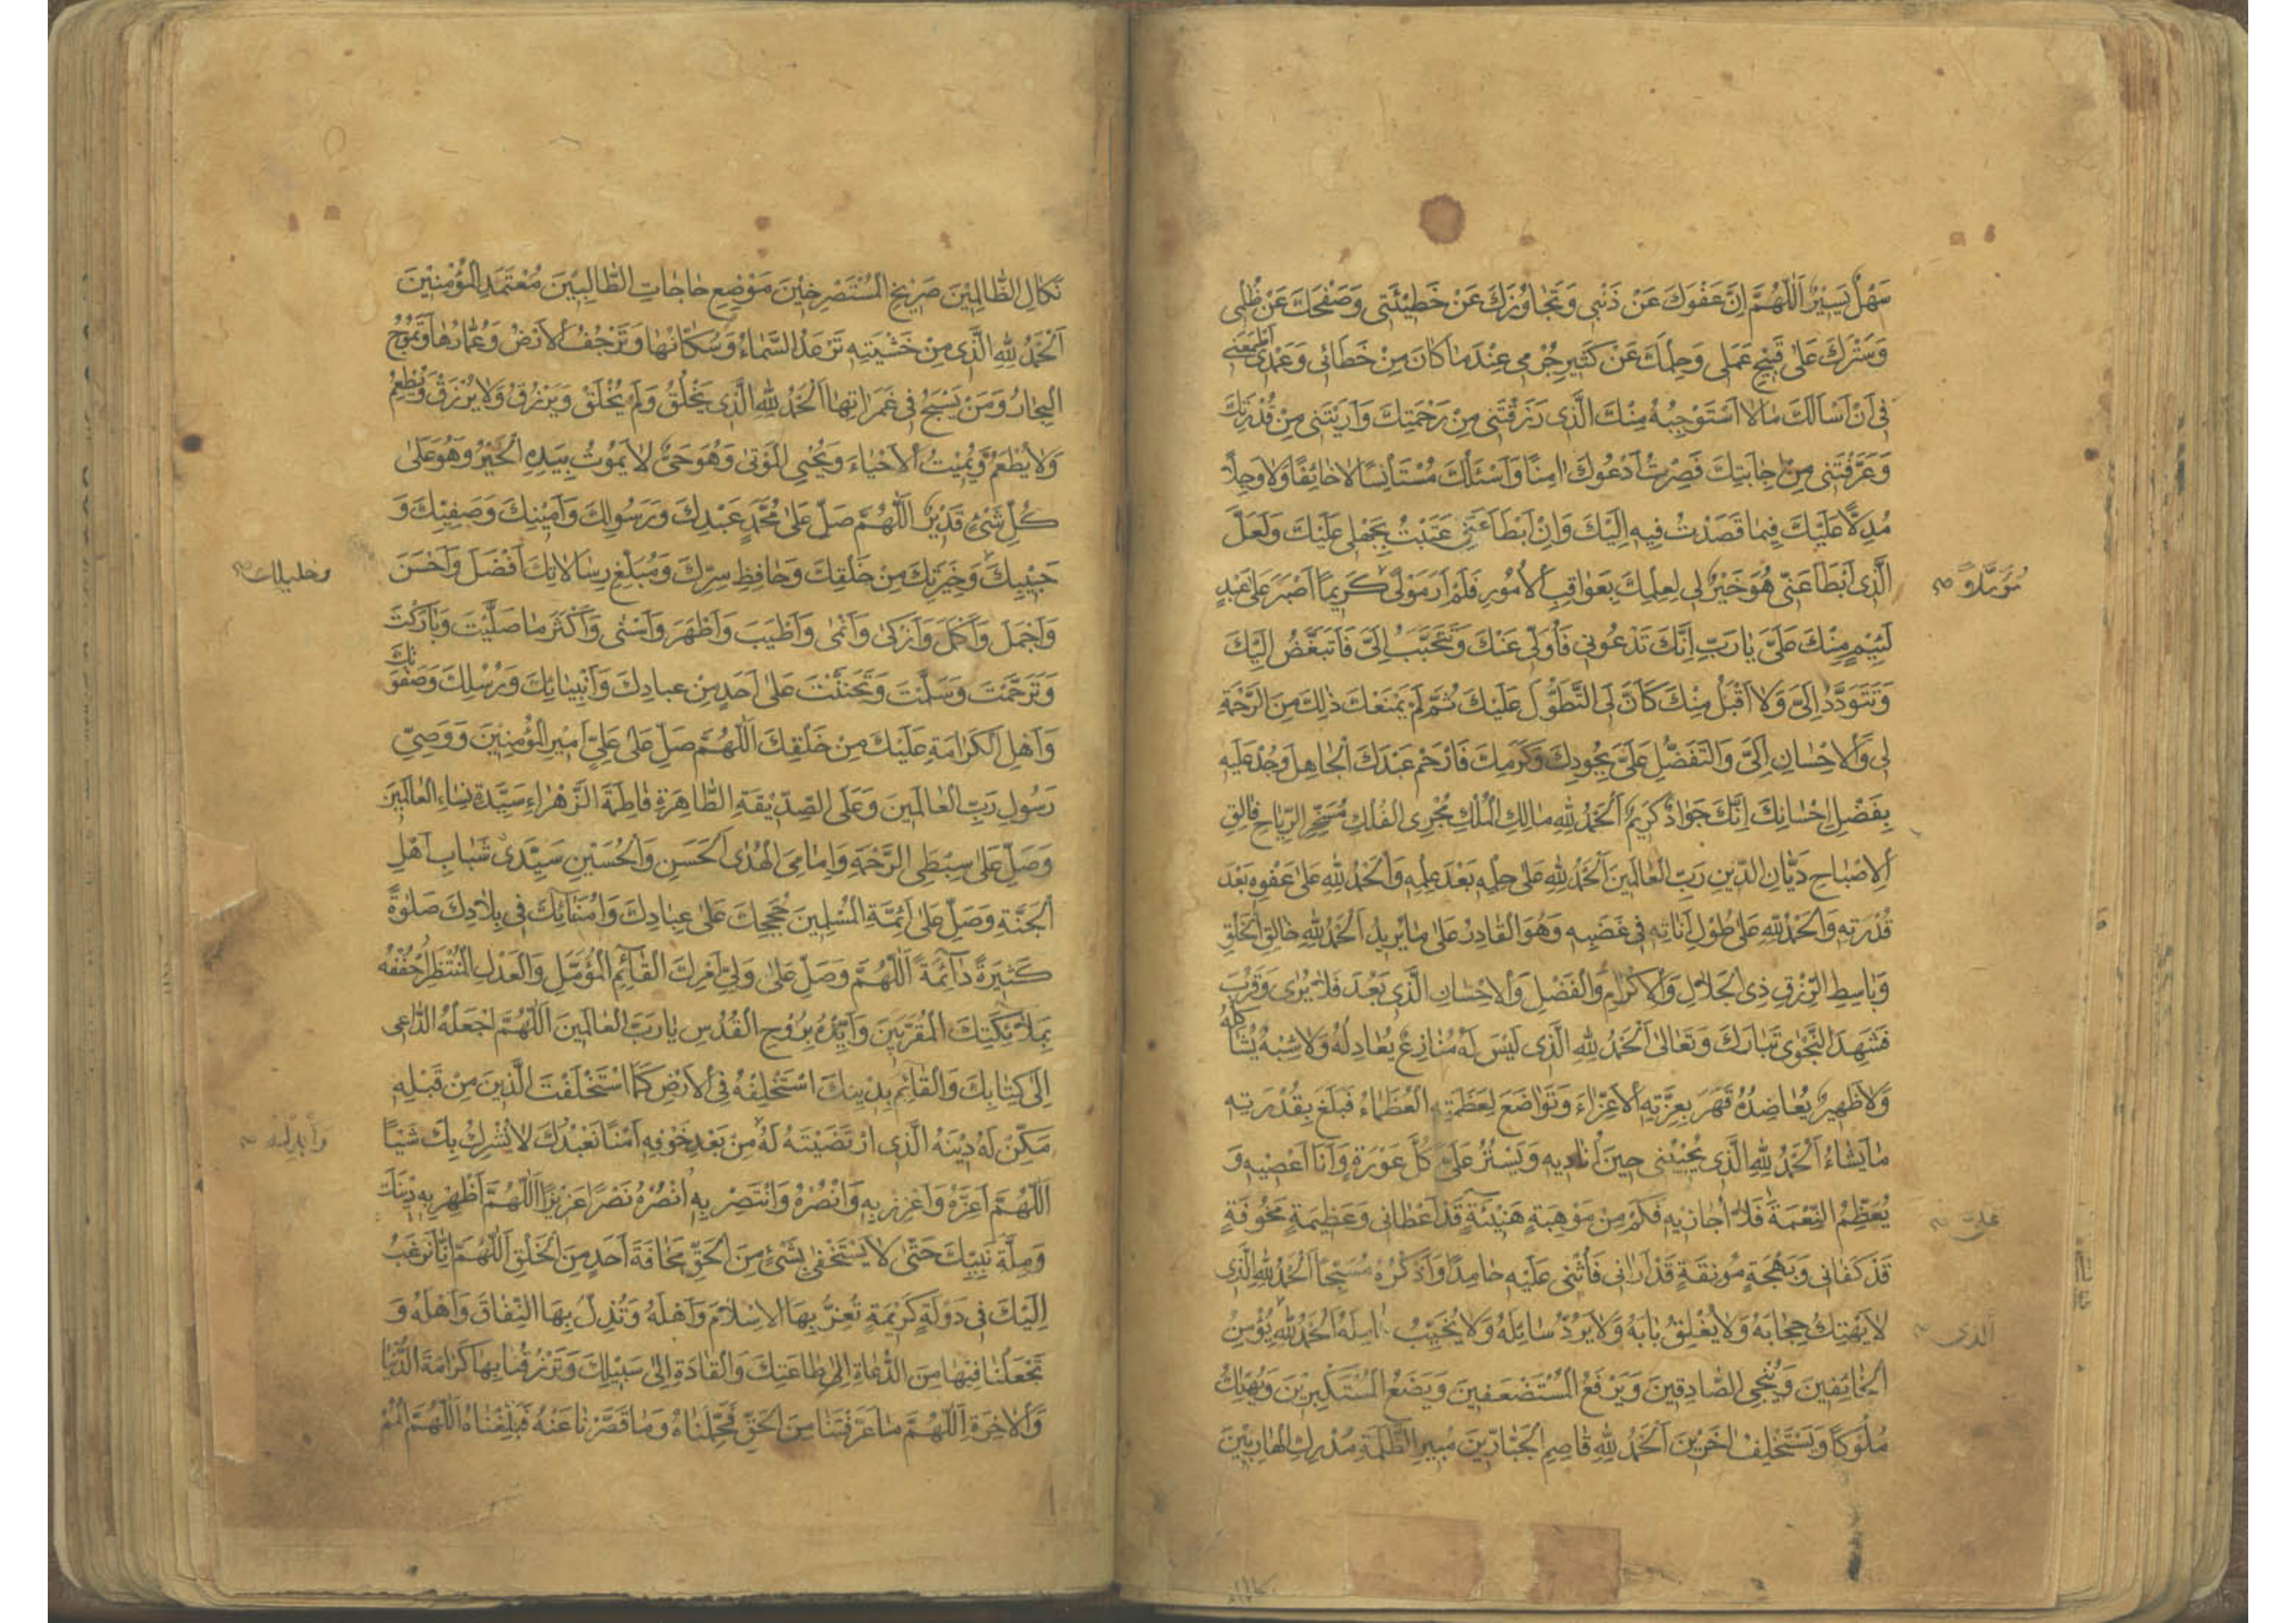 سَهْلٌ يَسِيْرٌ اَللّٰهُمَّ اِنَّ عَفْوَكَ عَنْ ذَنْبِى وَتَجَاوُزَكَ عَنْ خَطِيْئَتِى وَصَفْحَكَ عَنْ ظُلْمِى
وَسَتْرَكَ عَلٰى قَبِيْحِ عَمَلِى وَحِلْمَكَ عَنْ كَثِيْرِ جُرْمِى عِنْدَ مَا كَانَ مِنْ خَطَائِى وَعَمْدِى اَطْمَعَنِى
فِى اَنْ اَسْاَلَكَ مَا لَا اَسْتَوْجِبُهُ مِنْكَ الَّذِى رَزَقْتَنِى مِنْ رَحْمَتِكَ وَاَرَيْتَنِى مِنْ قُدْرَتِكَ
وَعَرَّفْتَنِى مِنْ اِجَابَتِكَ فَصِرْتُ اَدْعُوكَ اٰمِنًا وَاَسْئَلُكَ مُسْتَانِسًا لَا خَائِفًا وَلَا وَجِلًا
مُدِلًّا عَلَيْكَ فِيمَا قَصَدْتُ فِيهِ اِلَيْكَ وَاِنْ اَبْطَا عَنِّى عَتَبْتُ بِجَهْلِى عَلَيْكَ وَلَعَلَّ
الَّذِى اَبْطَا عَنِّى هُوَ خَيْرٌ لِى لِعِلْمِكَ بِعَوَاقِبِ الْاُمُورِ فَلَمْ اَرَ مَوْلًى كَرِيمًا اَصْبَرَ عَلٰى عَبْدٍ
مُؤَمَّلًا
لَئِيْمٍ مِنْكَ عَلَىَّ يَا رَبِّ اِنَّكَ تَدْعُونِى فَاُوَلِّى عَنْكَ وَتَتَحَبَّبُ اِلَىَّ فَاَتَبَغَّضُ اِلَيْكَ
وَتَتَوَدَّدُ اِلَىَّ وَلَا اَقْبَلُ مِنْكَ كَاَنَّ لِىَ التَّطَوُّلَ عَلَيْكَ ثُمَّ لَمْ يَمْنَعْكَ ذٰلِكَ مِنَ الرَّحْمَةِ
لِى وَالْاِحْسَانِ اِلَىَّ وَالتَّفَضُّلِ عَلَىَّ بِجُودِكَ وَكَرَمِكَ فَارْحَمْ عَبْدَكَ الْجَاهِلَ وَجُدْ عَلَيْهِ
بِفَضْلِ اِحْسَانِكَ اِنَّكَ جَوَادٌ كَرِيمٌ اَلْحَمْدُ لِلّٰهِ مَالِكِ الْمُلْكِ مُجْرِى الْفُلْكِ مُسَخِّرِ الرِّيَاحِ فَالِقِ
الْاِصْبَاحِ دَيَّانِ الدِّينِ رَبِّ الْعَالَمِينَ اَلْحَمْدُ لِلّٰهِ عَلٰى حِلْمِهِ بَعْدَ عِلْمِهِ وَالْحَمْدُ لِلّٰهِ عَلٰى عَفْوِهِ بَعْدَ
قُدْرَتِهِ وَالْحَمْدُ لِلّٰهِ عَلٰى طُولِ اَنَاتِهِ فِى غَضَبِهِ وَهُوَ الْقَادِرُ عَلٰى مَا يُرِيدُ اَلْحَمْدُ لِلّٰهِ خَالِقِ الْخَلْقِ
وَبَاسِطِ الرِّزْقِ ذِى الْجَلَالِ وَالْاِكْرَامِ وَالْفَضْلِ وَالْاِحْسَانِ الَّذِى بَعُدَ فَلَا يُرٰى وَقَرُبَ
فَشَهِدَ النَّجْوٰى تَبَارَكَ وَتَعَالٰى اَلْحَمْدُ لِلّٰهِ الَّذِى لَيْسَ لَهُ مُنَازِعٌ يُعَادِلُهُ وَلَا شِبْهٌ يُشَاكِلُهُ
وَلَا ظَهِيرٌ يُعَاضِدُهُ قَهَرَ بِعِزَّتِهِ الْاَعِزَّاءَ وَتَوَاضَعَ لِعَظَمَتِهِ الْعُظَمَاءُ فَبَلَغَ بِقُدْرَتِهِ
مَا يَشَاءُ اَلْحَمْدُ لِلّٰهِ الَّذِى يُجِيْبُنِى حِينَ اُنَادِيهِ وَيَسْتُرُ عَلَىَّ كُلَّ عَوْرَةٍ وَاَنَا اَعْصِيْهِ وَ
يُعَظِّمُ النِّعْمَةَ فَلَا اُجَازِيهِ فَكَمْ مِنْ مَوْهِبَةٍ هَنِيْئَةٍ قَدْ اَعْطَانِى وَعَظِيمَةٍ مَخُوفَةٍ
عَلَىَّ
قَدْ كَفَانِى وَبَهْجَةٍ مُونِقَةٍ قَدْ اَرَانِى فَاُثْنِى عَلَيْهِ حَامِدًا وَاَذْكُرُهُ مُسَبِّحًا اَلْحَمْدُ لِلّٰهِ الَّذِى
لَا يُهْتَكُ حِجَابُهُ وَلَا يُغْلَقُ بَابُهُ وَلَا يُرَدُّ سَائِلُهُ وَلَا يُخَيَّبُ اٰمِلُهُ اَلْحَمْدُ لِلّٰهِ يُؤْمِنُ
اَلَّذِى
الْخَائِفِينَ وَيُنْجِى الصَّادِقِينَ وَيَرْفَعُ الْمُسْتَضْعَفِينَ وَيَضَعُ الْمُسْتَكْبِرِيْنَ وَيُهْلِكُ
مُلُوكًا وَيَسْتَخْلِفُ اٰخَرِيْنَ اَلْحَمْدُ لِلّٰهِ قَاصِمِ الْجَبَّارِيْنَ مُبِيرِ الظَّلَمَةِ مُدْرِكِ الْهَارِبِيْنَ
نَكَالِ الظَّالِمِيْنَ صَرِيْخِ الْمُسْتَصْرِخِيْنَ مَوْضِعِ حَاجَاتِ الطَّالِبِيْنَ مُعْتَمَدِ الْمُؤْمِنِيْنَ
اَلْحَمْدُ لِلّٰهِ الَّذِى مِنْ خَشْيَتِهِ تَرْعَدُ السَّمَاءُ وَسُكَّانُهَا وَتَرْجُفُ الْاَرْضُ وَعُمَّارُهَا وَتَمُوْجُ
الْبِحَارُ وَمَنْ يَسْبَحُ فِى غَمَرَاتِهَا اَلْحَمْدُ لِلّٰهِ الَّذِى يَخْلُقُ وَلَمْ يُخْلَقْ وَيَرْزُقُ وَلَا يُرْزَقُ وَيُطْعِمُ
وَلَا يُطْعَمُ وَيُمِيْتُ الْاَحْيَاءَ وَيُحْيِى الْمَوْتٰى وَهُوَ حَىٌّ لَا يَمُوْتُ بِيَدِهِ الْخَيْرُ وَهُوَ عَلٰى
كُلِّ شَىْءٍ قَدِيْرٌ اَللّٰهُمَّ صَلِّ عَلٰى مُحَمَّدٍ عَبْدِكَ وَرَسُوْلِكَ وَاَمِيْنِكَ وَصَفِيِّكَ وَ
حَبِيْبِكَ وَخِيَرَتِكَ مِنْ خَلْقِكَ وَحَافِظِ سِرِّكَ وَمُبَلِّغِ رِسَالَاتِكَ اَفْضَلَ وَاَحْسَنَ
وخليلك
وَاَجْمَلَ وَاَكْمَلَ وَاَزْكٰى وَاَنْمٰى وَاَطْيَبَ وَاَطْهَرَ وَاَسْنٰى وَاَكْثَرَ مَا صَلَّيْتَ وَبَارَكْتَ
وَتَرَحَّمْتَ وَسَلَّمْتَ وَتَحَنَّنْتَ عَلٰى اَحَدٍ مِنْ عِبَادِكَ وَاَنْبِيَائِكَ وَرُسُلِكَ وَصَفْوَتِكَ
وَاَهْلِ الْكَرَامَةِ عَلَيْكَ مِنْ خَلْقِكَ اَللّٰهُمَّ صَلِّ عَلٰى عَلِىٍّ اَمِيْرِ الْمُؤْمِنِيْنَ وَوَصِىِّ
رَسُولِ رَبِّ الْعَالَمِينَ وَعَلَى الصِّدِّيْقَةِ الطَّاهِرَةِ فَاطِمَةَ الزَّهْرَاءِ سَيِّدَةِ نِسَاءِ الْعَالَمِيْنَ
وَصَلِّ عَلٰى سِبْطَىِ الرَّحْمَةِ وَاِمَامَىِ الْهُدٰى الْحَسَنِ وَالْحُسَيْنِ سَيِّدَىْ شَبَابِ اَهْلِ
الْجَنَّةِ وَصَلِّ عَلٰى اَئِمَّةِ الْمُسْلِمِينَ حُجَجِكَ عَلٰى عِبَادِكَ وَاُمَنَائِكَ فِى بِلَادِكَ صَلٰوةً
كَثِيْرَةً دَائِمَةً اَللّٰهُمَّ وَصَلِّ عَلٰى وَلِىِّ اَمْرِكَ الْقَائِمِ الْمُؤَمَّلِ وَالْعَدْلِ الْمُنْتَظَرِ اُحْفُفْهُ
بِمَلَائِكَتِكَ الْمُقَرَّبِيْنَ وَاَيِّدْهُ بِرُوْحِ الْقُدُسِ يَا رَبَّ الْعَالَمِيْنَ اَللّٰهُمَّ اجْعَلْهُ الدَّاعِى
اِلٰى كِتَابِكَ وَالْقَائِمَ بِدِيْنِكَ اسْتَخْلِفْهُ فِى الْاَرْضِ كَمَا اسْتَخْلَفْتَ الَّذِيْنَ مِنْ قَبْلِهِ
مَكِّنْ لَهُ دِيْنَهُ الَّذِى ارْتَضَيْتَهُ لَهُ مِنْ بَعْدِ خَوْفِهِ اَمْنًا نَعْبُدُكَ لَا نُشْرِكُ بِكَ شَيْئًا
وَاَبْدِلْهُ
اَللّٰهُمَّ اَعِزَّهُ وَاَعْزِزْ بِهِ وَانْصُرْهُ وَانْتَصِرْ بِهِ اُنْصُرْهُ نَصْرًا عَزِيْزًا اَللّٰهُمَّ اَظْهِرْ بِهِ دِيْنَكَ
وَمِلَّةَ نَبِيِّكَ حَتّٰى لَا يَسْتَخْفِىَ بِشَىْءٍ مِنَ الْحَقِّ مَخَافَةَ اَحَدٍ مِنَ الْخَلْقِ اَللّٰهُمَّ اِنَّا نَرْغَبُ
اِلَيْكَ فِى دَوْلَةٍ كَرِيْمَةٍ تُعِزُّ بِهَا الْاِسْلَامَ وَاَهْلَهُ وَتُذِلُّ بِهَا النِّفَاقَ وَاَهْلَهُ وَ
تَجْعَلُنَا فِيْهَا مِنَ الدُّعَاةِ اِلٰى طَاعَتِكَ وَالْقَادَةِ اِلٰى سَبِيْلِكَ وَتَرْزُقُنَا بِهَا كَرَامَةَ الدُّنْيَا
وَالْاٰخِرَةِ اَللّٰهُمَّ مَا عَرَّفْتَنَا مِنَ الْحَقِّ فَحَمِّلْنَاهُ وَمَا قَصَّرْنَا عَنْهُ فَبَلِّغْنَاهُ اَللّٰهُمَّ الْمُمْ